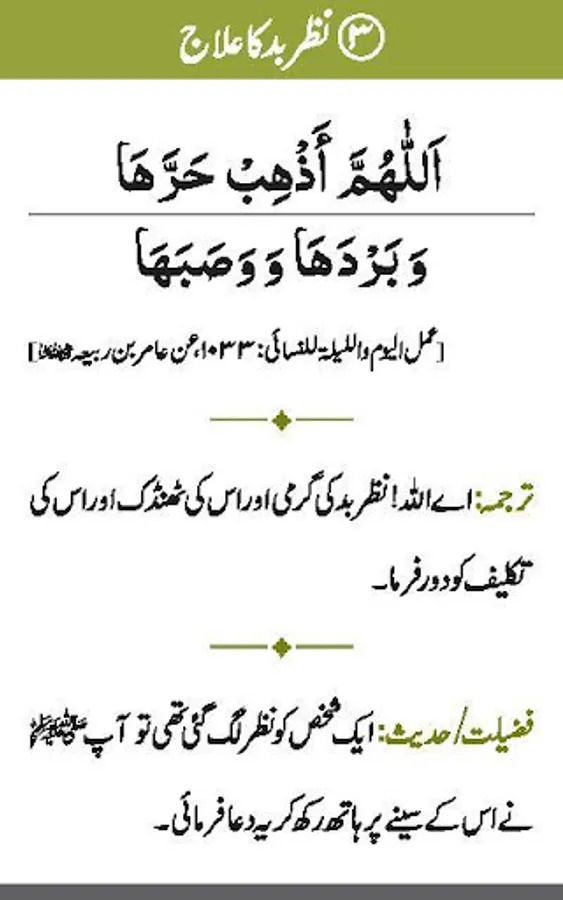 ③ نظر بد کا علاج
اَللّٰهُمَّ أَذْهِبْ حَرَّهَا
وَبَرْدَهَا وَوَصَبَهَا
[عمل الیوم واللیلۃ للنسائی: ۱۰۳۳، عن عامر بن ربیعہ رضی اللہ عنہ]
ترجمہ: اے اللہ! نظر بد کی گرمی اور اس کی ٹھنڈک اور اس کی
تکلیف کو دور فرما۔
فضیلت/حدیث: ایک شخص کو نظر لگ گئی تھی تو آپ ﷺ
نے اس کے سینے پر ہاتھ رکھ کر یہ دعا فرمائی۔